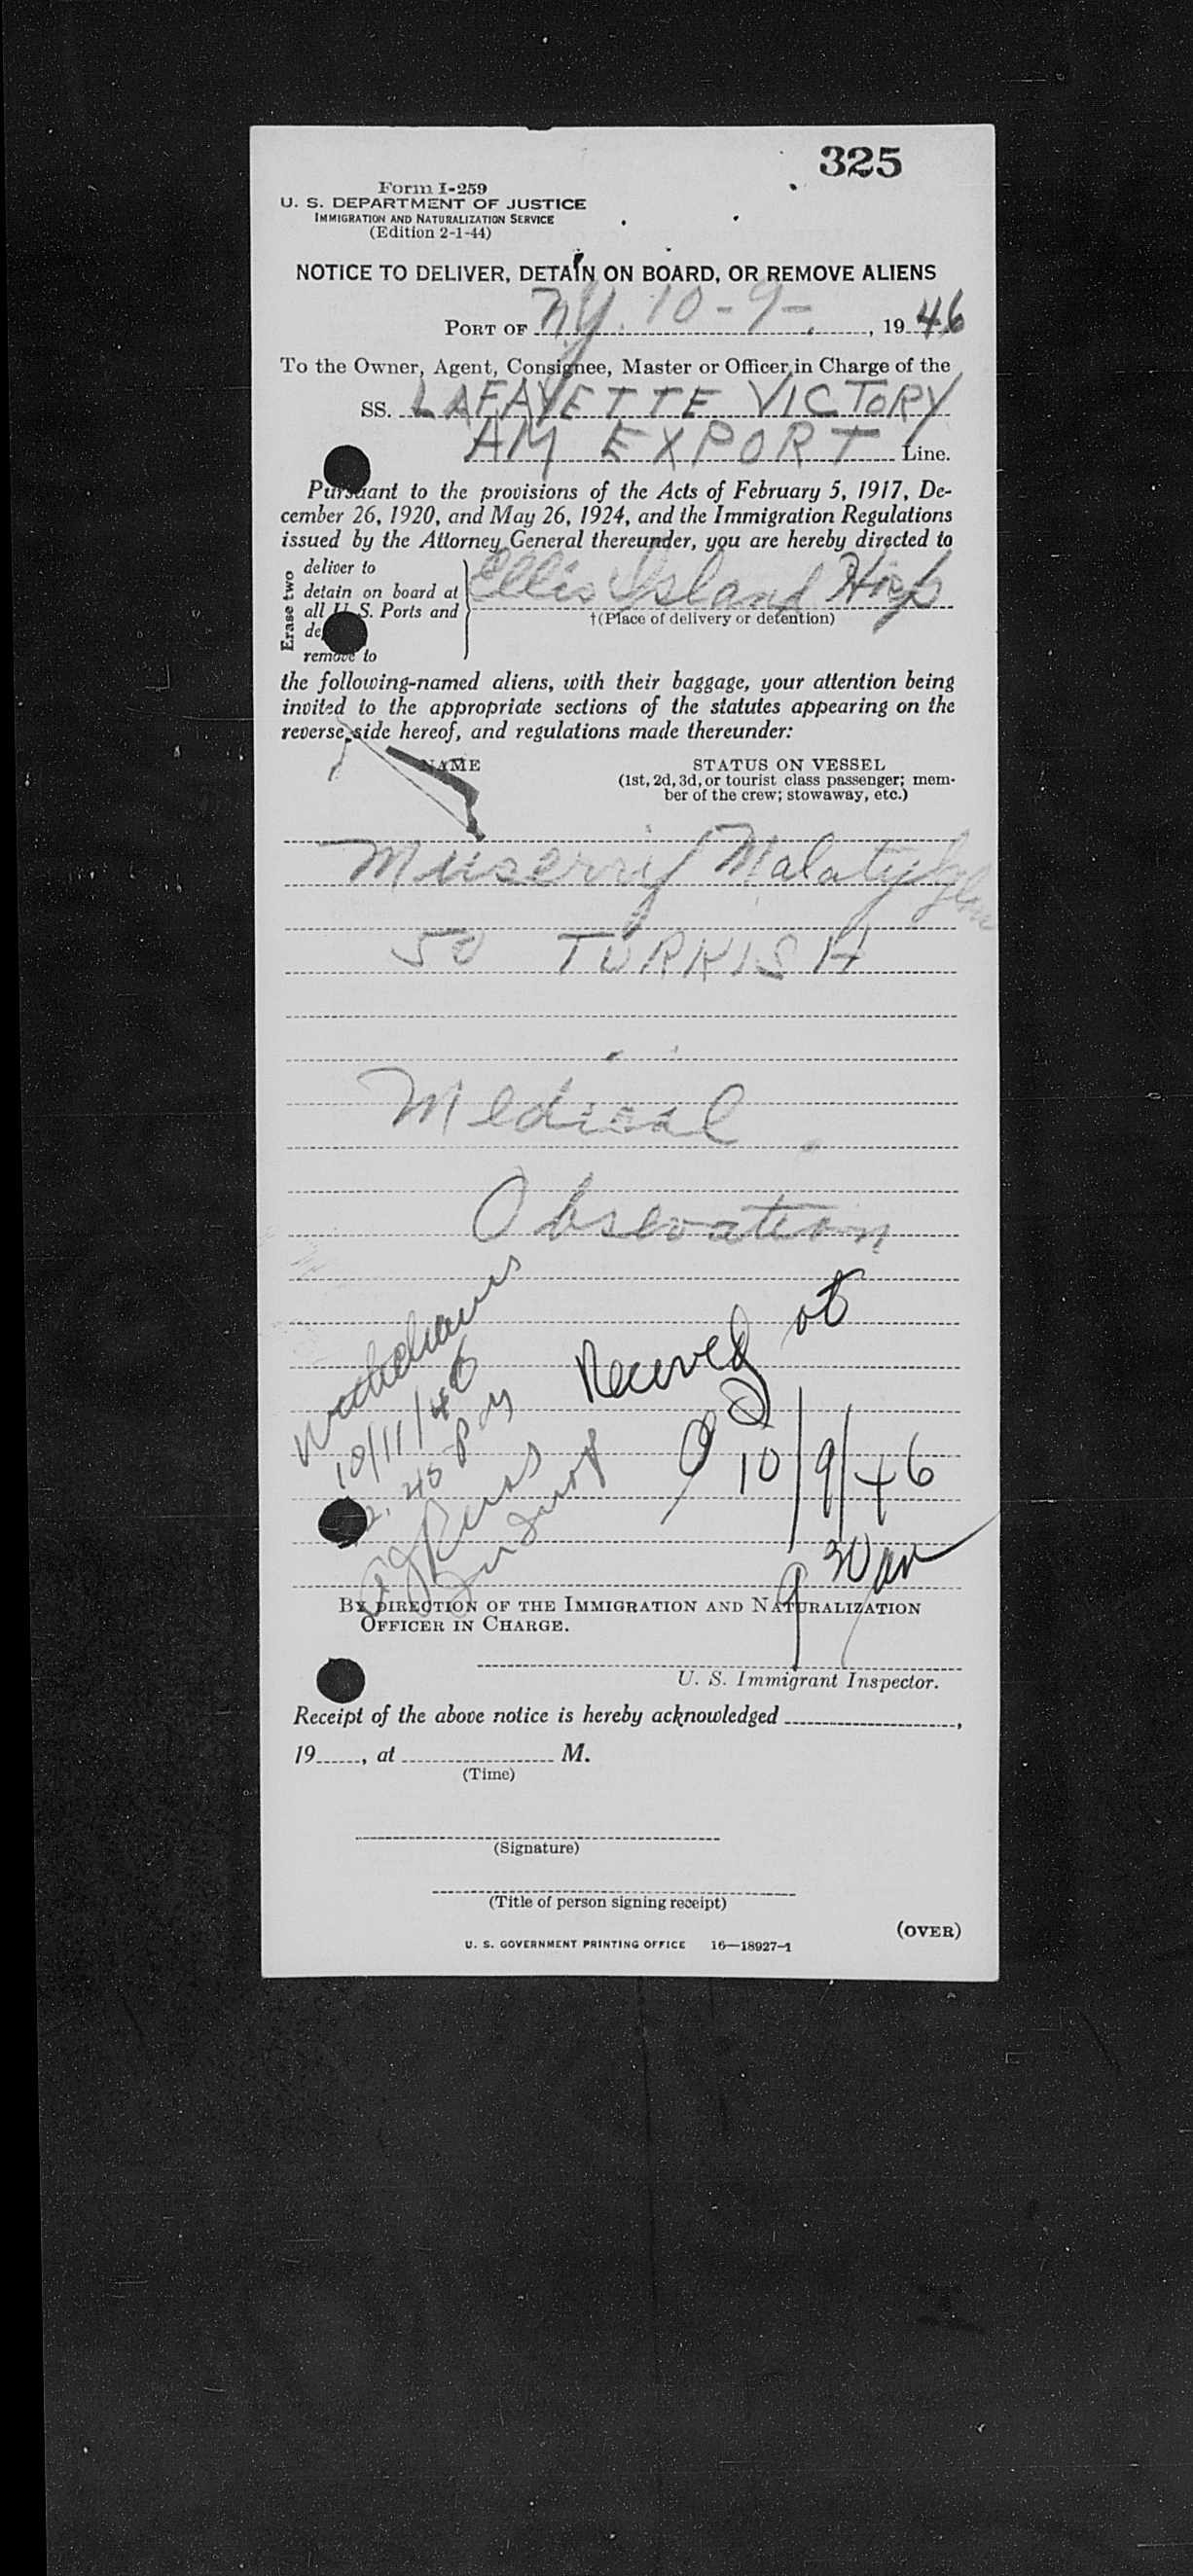 325
Form I-259
U. S. DEPARTMENT OF JUSTICE
IMMIGRATION AND NATURALIZATION SERVICE
(Edition 2-1-44)
NOTICE TO DELIVER, DETAIN ON BOARD, OR REMOVE ALIENS
PORT OF N.Y. 10-9-, 1946
To the Owner, Agent, Consignee, Master or Officer in Charge of the
SS. LAFAYETTE VICTORY
AM EXPORT Line.
Pursuant to the provisions of the Acts of February 5, 1917, De-
cember 26, 1920, and May 26, 1924, and the Immigration Regulations
issued by the Attorney General thereunder, you are hereby directed to
Erase two
deliver to
detain on board at
all U. S. Ports and
de
remove to
Ellis Island Hosp
†(Place of delivery or detention)
the following-named aliens, with their baggage, your attention being
invited to the appropriate sections of the statutes appearing on the
reverse side hereof, and regulations made thereunder:
NAME
STATUS ON VESSEL
(1st, 2d, 3d, or tourist class passenger; mem-
ber of the crew; stowaway, etc.)
Muserrif
50 TURKISH
Medical
Obsevation
Received at
10/9/46
9 30 am
10/11/46
BY DIRECTION OF THE IMMIGRATION AND NATURALIZATION
OFFICER IN CHARGE.
U. S. Immigrant Inspector.
Receipt of the above notice is hereby acknowledged ,
19 , at M.
(Time)
(Signature)
(Title of person signing receipt)
(OVER)
U. S. GOVERNMENT PRINTING OFFICE 16—18927-1